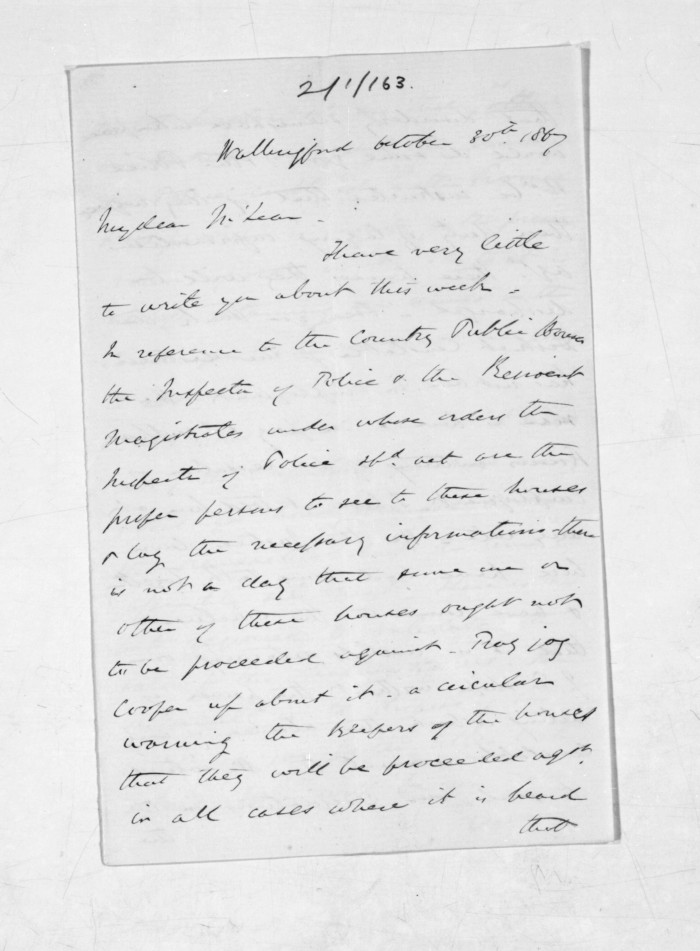 2/1/163.
Wallingford October 30th 1867
My dear McLean -
I have very little
to write you about this week -
In reference to the Country Public Houses
the Inspector of Police & the Resident
Magistrates under whose orders the
Inspector of Police shd. act are the
proper persons to see to these houses
& lay the necessary informations - there
is not a day that some one or
other of these houses ought not
to be proceeded against. Pray jog
Cooper up about it - a circular
warning the keepers of the houses
that they will be proceeded agst.
in all cases where it is heard
that